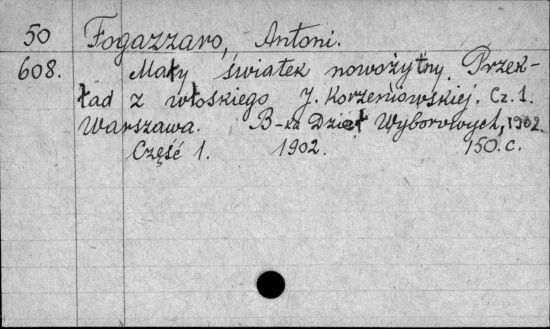 50 Fogazzaro, Antoni.
608. Mały światek nowożytny. Przek-
ład z włoskiego J. Korzeniowskiej. Cz. 1.
Warszawa. B-ka Dzieł Wyborowych, 1902.
Część 1. 1902. 150.c.